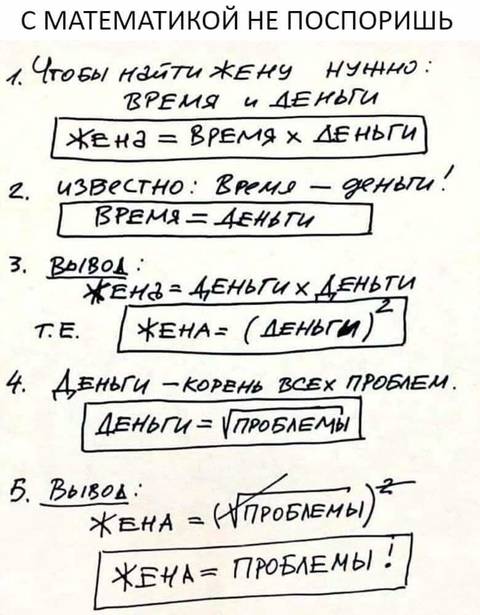 С МАТЕМАТИКОЙ НЕ ПОСПОРИШЬ
1. Чтобы найти жену нужно:
ВРЕМЯ и ДЕНЬГИ
Жена = ВРЕМЯ х ДЕНЬГИ
2. известно: Время – деньги!
ВРЕМЯ = ДЕНЬГИ
3. Вывод:
ЖЕНа = ДЕНЬГИ х ДЕНЬГИ
Т.Е. ЖЕНА = (ДЕНЬГИ)²
4. ДЕНЬГИ – КОРЕНЬ ВСЕХ ПРОБЛЕМ.
ДЕНЬГИ = √ПРОБЛЕМЫ
5. Вывод:
ЖЕНА = (√ПРОБЛЕМЫ)²
ЖЕНА = ПРОБЛЕМЫ!